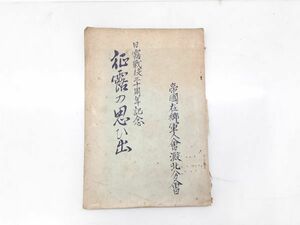 帝國在郷軍人會澱北分會
日露戰役三十周年記念
征露の思ひ出